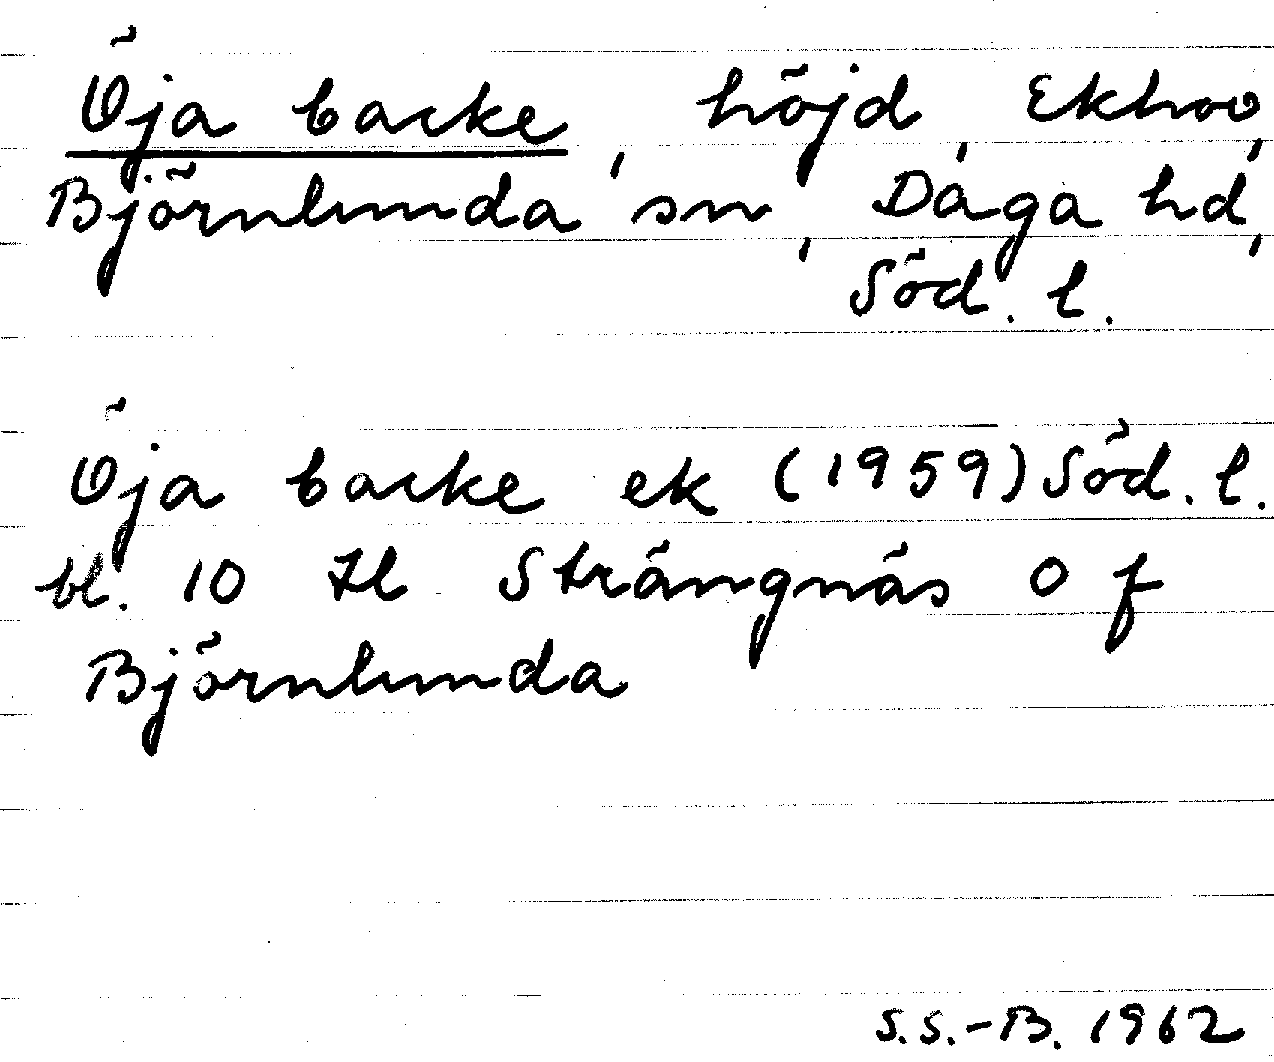 Öja backe, höjd, Ekhov,
Björnlunda sn, Daga hd,
Söd. l.
Öja backe ek (1959) Söd. l.
bl. 10 Il Strängnäs O f
Björnlunda
S.S.-B. 1962